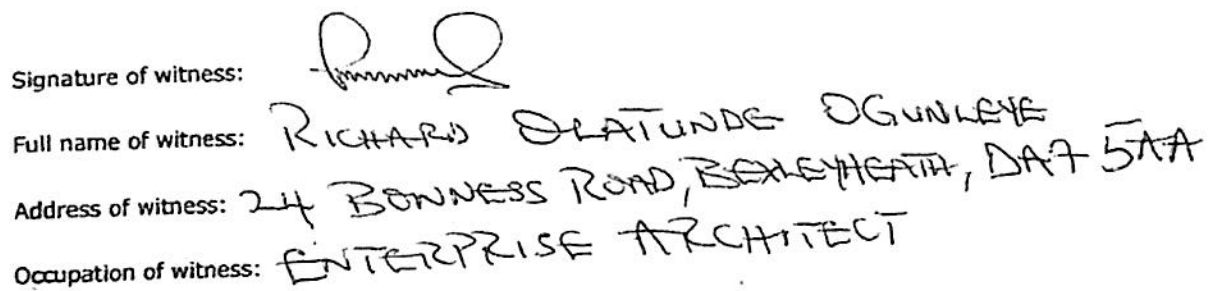 Signature of witness:
Full name of witness: RICHARD OLATUNDE OGUNLEYE
Address of witness: 24 BOWNESS ROAD, BEXLEYHEATH, DA7 5AA
Occupation of witness: ENTERPRISE ARCHITECT